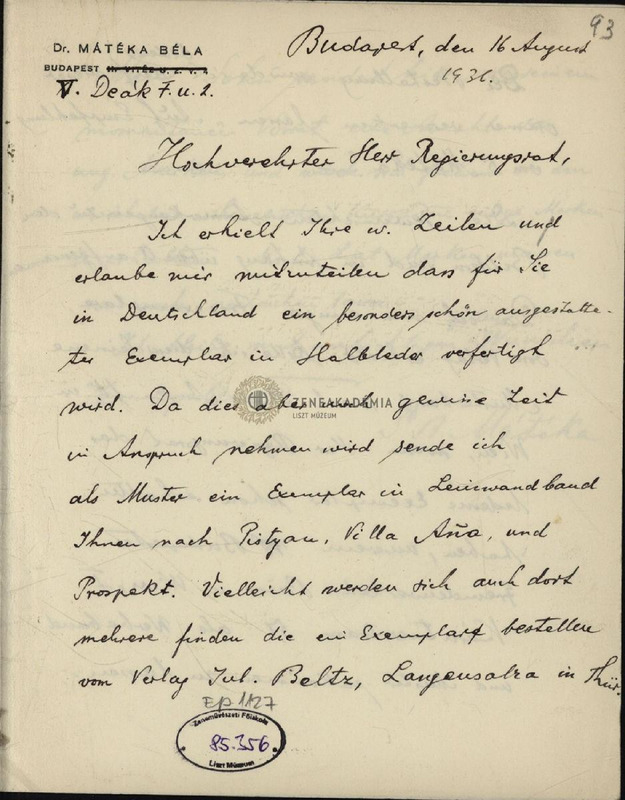 93
Dr. MÁTÉKA BÉLA
BUDAPEST
V. Deák F. u. 2.
Budapest, den 16 August
1936.
Hochverehrter Herr Regierungsrat,
Ich erhielt Ihre w. Zeilen und
erlaube mir mitzuteilen dass für Sie
in Deutschland ein besonders schön ausgestatte-
ter Exemplar in Halbleder verfertigt
wird. Da dies aber noch gewisse Zeit
in Anspruch nehmen wird sende ich
als Muster ein Exemplar in Leinwandband
Ihnen nach Pistyan, Villa Aña, und
Prospekt. Vielleicht werden sich auch dort
mehrere finden die ein Exemplar bestellen
vom Verlag Jul. Beltz, Langensalza in Thür.
ZENEAKADÉMIA
LISZT MÚZEUM
Ep 1127
Zeneművészeti Főiskola
85.356
Liszt Múzeum